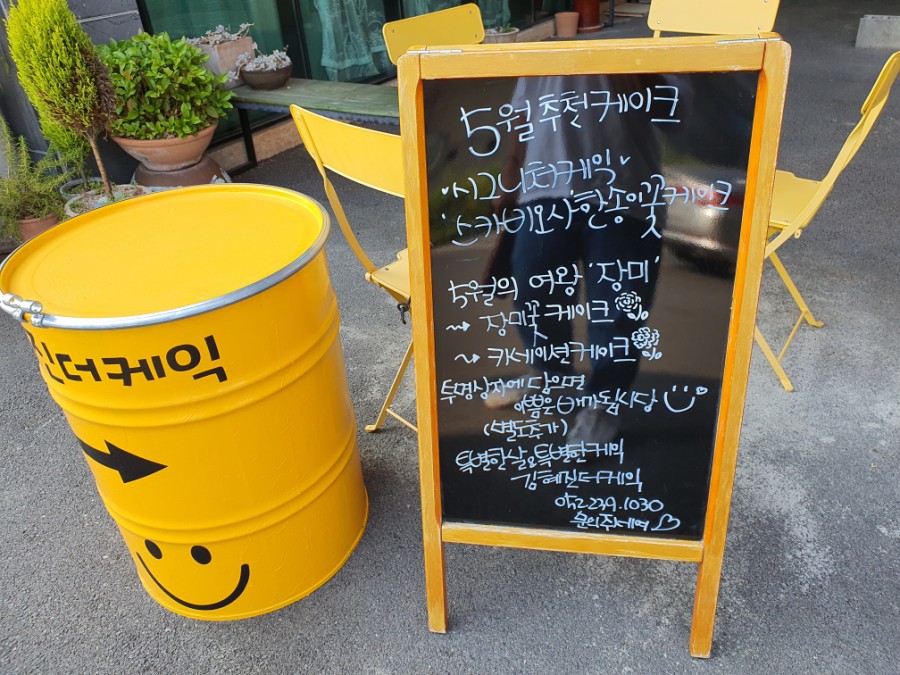 5월 추천케이크
시그니처케익
스카비오사 한송이꽃케이크
5월의 여왕 '장미'
장미꽃 케이크
카네이션케이크
투명상자에 담으면
이쁨은 배가됩니당
(별도추가)
특별한날 특별한케익
김혜진더케익
052.239.1030
문의주세여
진더케익